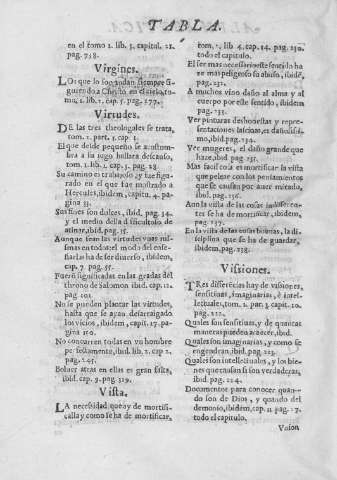 TABLA.
en el tomo 2. lib. 3. capitul. 12.
pag. 758.
Virgines.
LOs que lo son andan siempre siguiendo
a Christo en el cielo, tomo,
1. lib. 1. cap. 5. pag. 177.
Virtudes.
DE las tres theologales se trata,
tom. 2. part. 3. cap. 1.
El que desde pequeño se acostumbra
a su iugo hallara descanso,
tom. 1. lib. 1. cap. 3. pag. 23.
Su camino es trabajoso y fue figurado
en el que fue mostrado a
Hercules, ibidem, capitu. 4. pagina
33.
Sus fines son dulces, ibid. pag. 34.
y el medio della dificultoso de
atinar, ibid. pag. 35.
Aunque sean las virtudes unas mismas
en todos el modo del enseñarlas
ha de ser diverso, ibidem,
cap. 7. pag. 55.
Fueron significadas en las gradas del
throno de Salomon ibid. cap. 12.
pag. 101.
No se pueden plantar las virtudes,
hasta que se ayan desarraigado
los vicios, ibidem, capit. 17. pagina
150.
No concurren todas en un hombre
perfectamente, ibid. lib. 2. cap 2.
pag. 245.
Bolver atras en ellas es gran falta,
ibid. cap. 9. pag. 319.
Vista.
LA necesidad que ay de mortificalla
y como se ha de mortificar,
tom. 1. lib 4. cap. 14. pag. 230.
todo el capitulo.
El ser mas necessario este sentido haze
mas peligroso su abuso, ibidem,
pag. 231.
A muchos vino daño al alma y al
cuerpo por este sentido, ibidem
pag. 233.
Ver pinturas deshonestas y representaciones
lascivas, es dañosissimo,
ibid. pag. 234.
Ver mugeres, el daño grande que
haze, ibid. pag. 235.
Mas facil cosa es mortificar la vista
que pelear con los pensamientos
que se causan por aver mirado,
ibid. pag. 236.
Aun la vista de las cosas indiferentes
se ha de mortificar, ibidem,
pag. 237.
En la vista de las cosas buenas, la disciplina
que se ha de guardar,
ibidem, pag. 238.
Vissiones.
TRes differencias hay de vissiones,
sensitivas, imaginarias, e intellectuales,
tom. 2. par. 3. capit. 10.
pag. 222.
Quales son sensitivas, y de quantas
maneras pueden acaecer, ibid.
Quales son imaginarias, y como se
engendran, ibid. pag. 223.
Quales son intellectuales, y los bienes
que causan si son verdaderas,
ibid. pag. 224.
Documentos para conocer quando
son de Dios, y quando del
demonio, ibidem, cap. 11 pag. 
todo el capitulo.